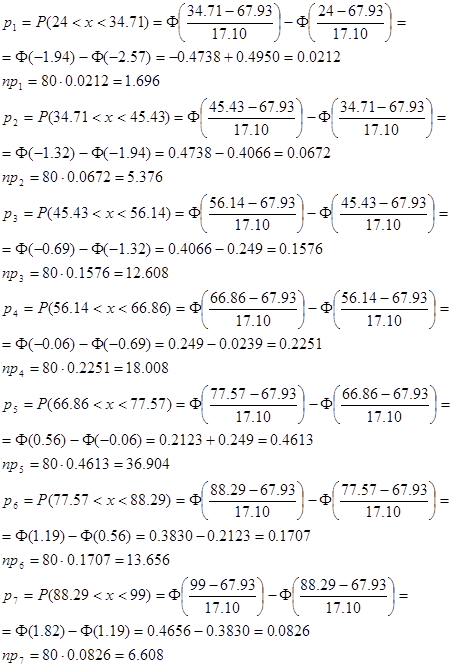 p₁ = P(24 < x < 34.71) = Φ((34.71 − 67.93)/17.10) − Φ((24 − 67.93)/17.10) =
= Φ(−1.94) − Φ(−2.57) = −0.4738 + 0.4950 = 0.0212
np₁ = 80 · 0.0212 = 1.696
p₂ = P(34.71 < x < 45.43) = Φ((45.43 − 67.93)/17.10) − Φ((34.71 − 67.93)/17.10) =
= Φ(−1.32) − Φ(−1.94) = 0.4738 − 0.4066 = 0.0672
np₂ = 80 · 0.0672 = 5.376
p₃ = P(45.43 < x < 56.14) = Φ((56.14 − 67.93)/17.10) − Φ((45.43 − 67.93)/17.10) =
= Φ(−0.69) − Φ(−1.32) = 0.4066 − 0.249 = 0.1576
np₃ = 80 · 0.1576 = 12.608
p₄ = P(56.14 < x < 66.86) = Φ((66.86 − 67.93)/17.10) − Φ((56.14 − 67.93)/17.10) =
= Φ(−0.06) − Φ(−0.69) = 0.249 − 0.0239 = 0.2251
np₄ = 80 · 0.2251 = 18.008
p₅ = P(66.86 < x < 77.57) = Φ((77.57 − 67.93)/17.10) − Φ((66.86 − 67.93)/17.10) =
= Φ(0.56) − Φ(−0.06) = 0.2123 + 0.249 = 0.4613
np₅ = 80 · 0.4613 = 36.904
p₆ = P(77.57 < x < 88.29) = Φ((88.29 − 67.93)/17.10) − Φ((77.57 − 67.93)/17.10) =
= Φ(1.19) − Φ(0.56) = 0.3830 − 0.2123 = 0.1707
np₆ = 80 · 0.1707 = 13.656
p₇ = P(88.29 < x < 99) = Φ((99 − 67.93)/17.10) − Φ((88.29 − 67.93)/17.10) =
= Φ(1.82) − Φ(1.19) = 0.4656 − 0.3830 = 0.0826
np₇ = 80 · 0.0826 = 6.608